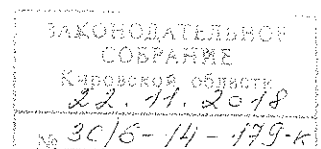 ЗАКОНОДАТЕЛЬНОЕ
СОБРАНИЕ
Кировской области
22.11.2018
№ ЗС/6-14-179-к